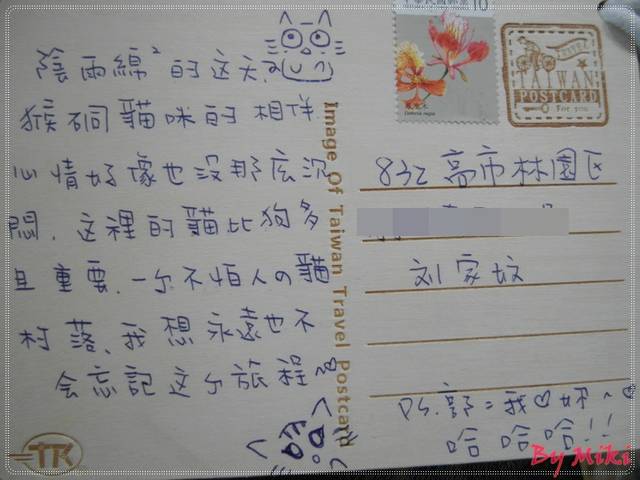 陰雨綿²的这天,
猴硐貓咪的相伴
心情好像也沒那底沉
悶,这裡的貓比狗多
且重要,一个不怕人の貓
村落,我想永遠也不
会忘記这个旅程~
中華民國郵票 10
TRAVEL
TAIWAN
POSTCARD
For you
Image Of Taiwan Travel Postcard
832 高市林園区
刘家妏
PS.郭=我♡妳~♡
哈哈哈!!
TR
By Miki